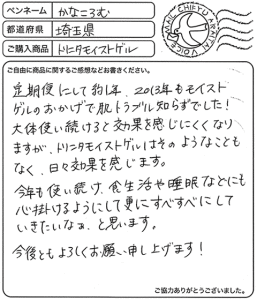 ペンネーム かなころむ
都道府県 埼玉県
ご購入商品 トリニタモイストゲル
ご自由に商品に関するご感想などお書きください。
定期便にして約1年、2013年もモイスト
ゲルのおかげで肌トラブル知らずでした!
大体使い続けると効果を感じにくくなり
ますが、トリニタモイストゲルはそのようなことも
なく、日々効果を感じます。
今年も使い続け、食生活や睡眠などにも
心掛けるようにして更にすべすべにして
いきたいなぁ、と思います。
今後ともよろしくお願い申し上げます!
ご協力ありがとうございました。